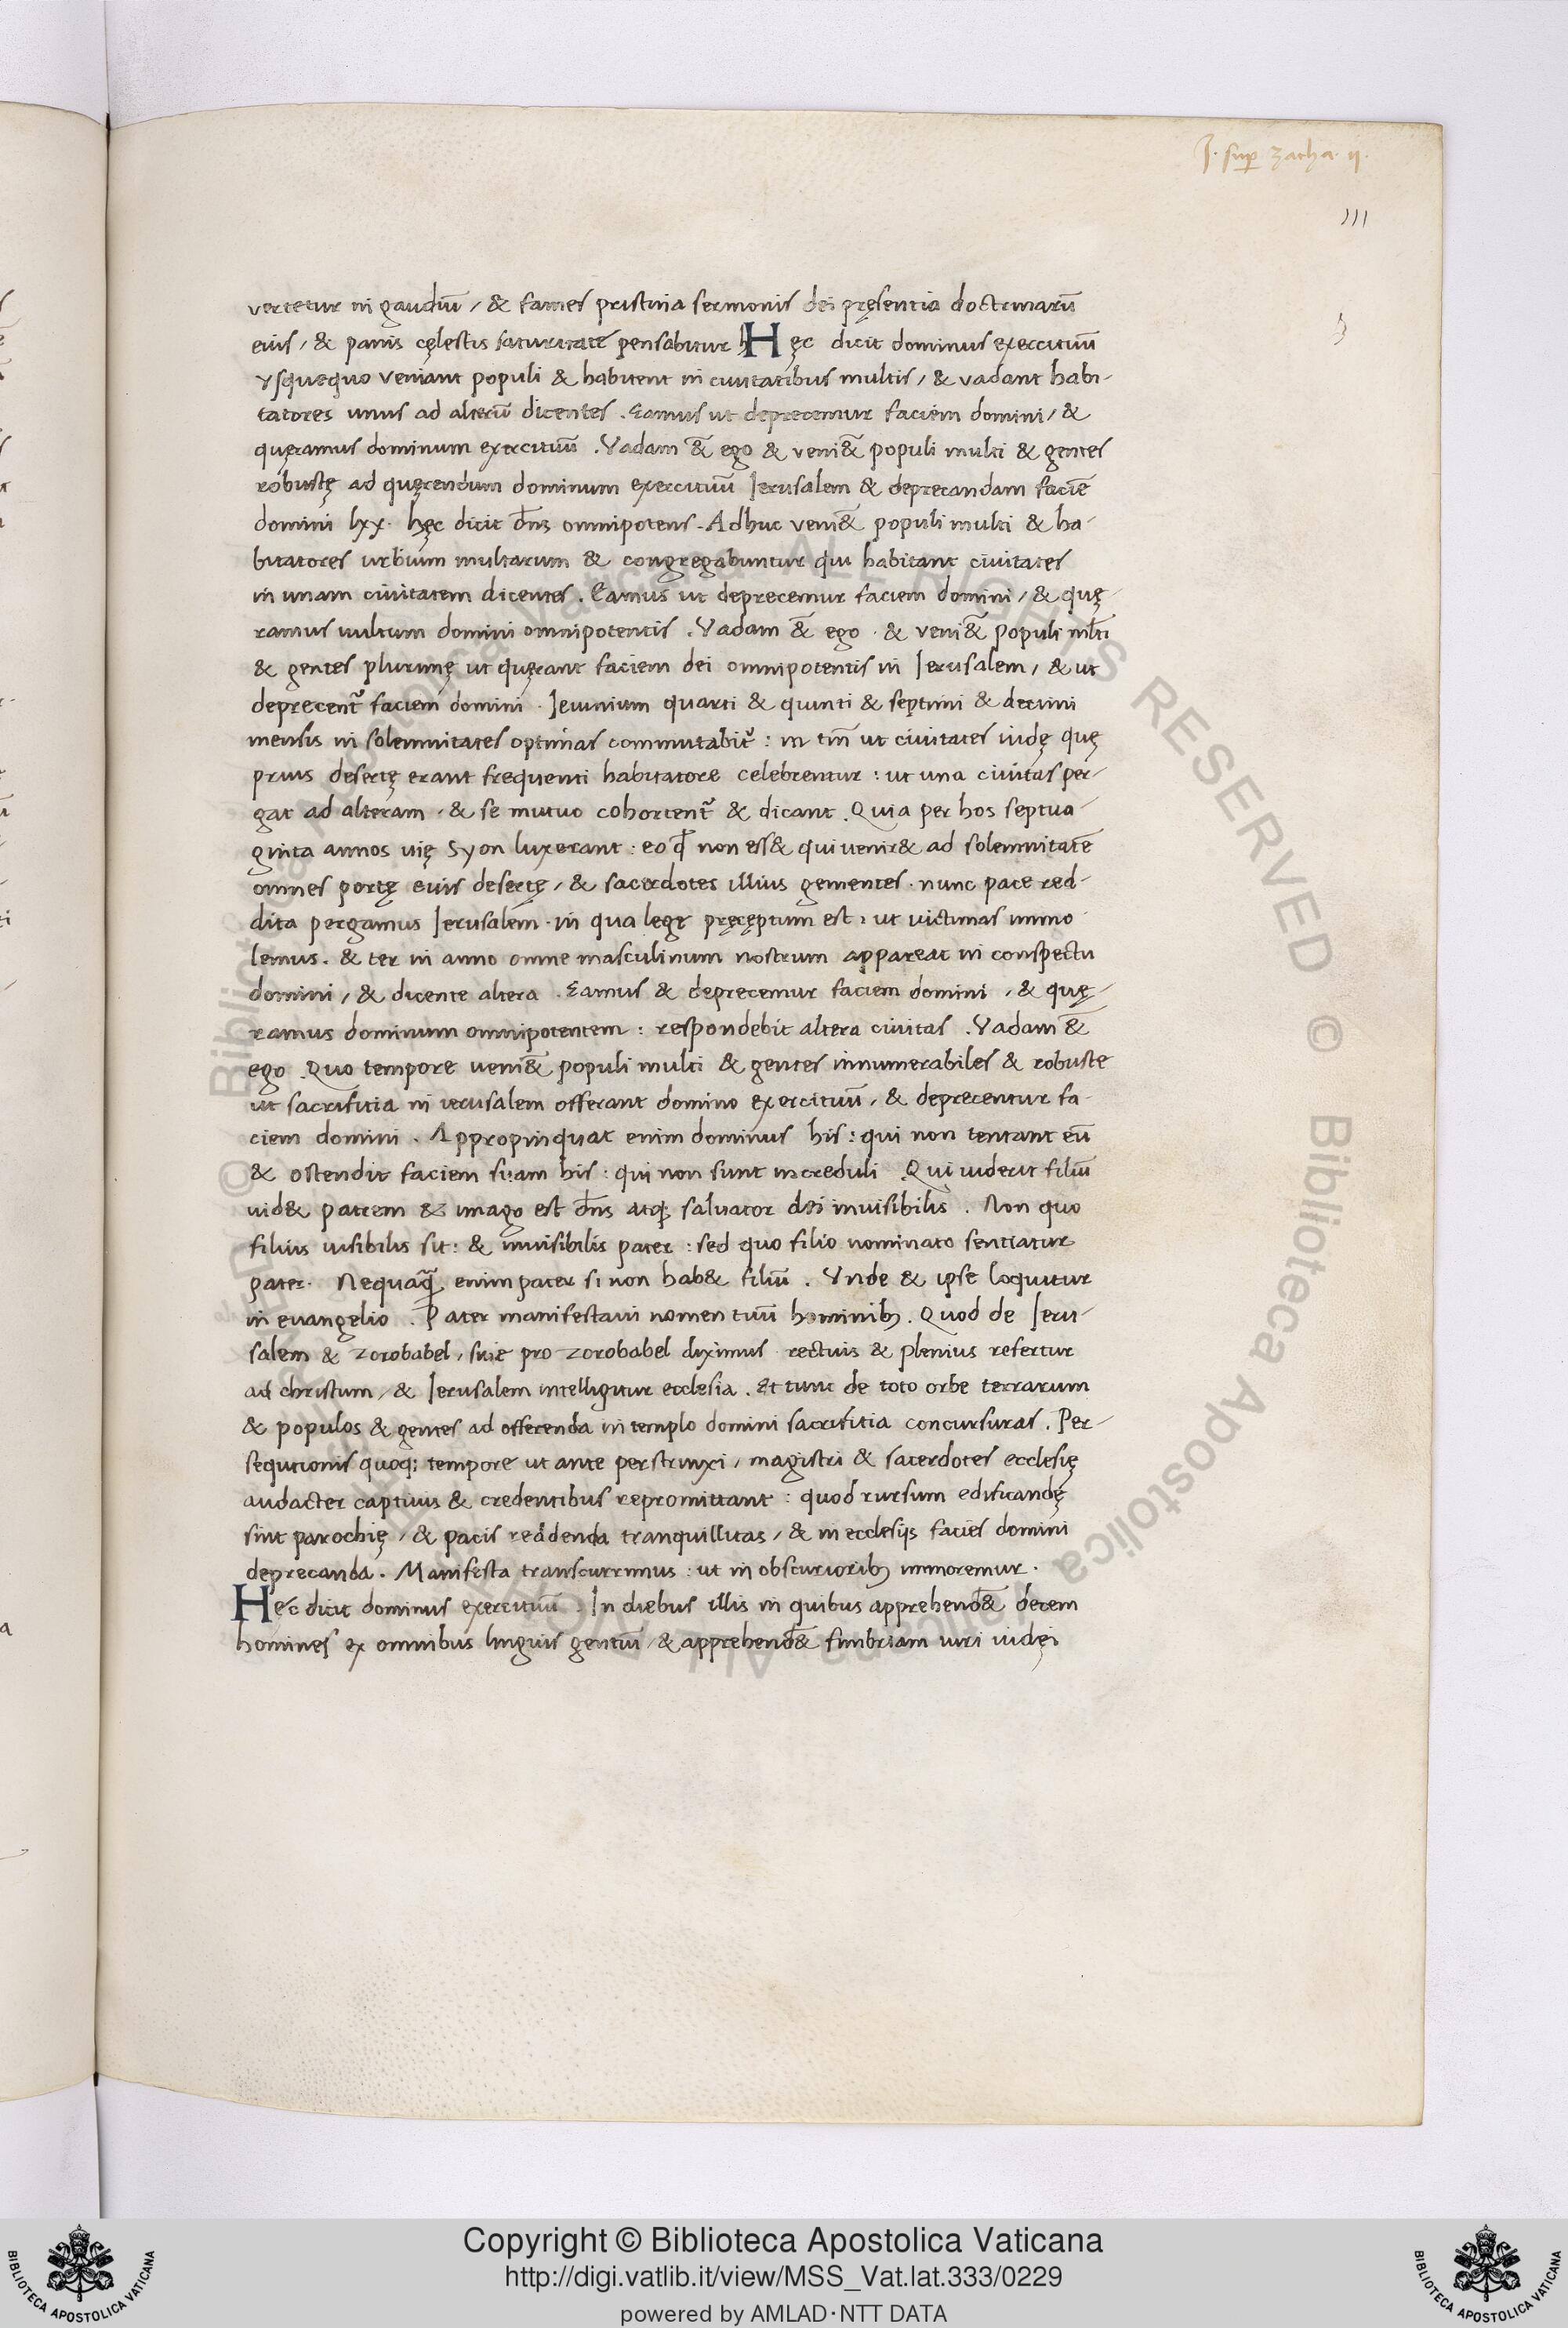 J. sup̄ zacha. ii.
111
vertetur in gaudiū / & fames pristina sermonis dei pręsentia doctrinarū
eius / & panis cęlestis saturitate pensabitur h Hęc dicit dominus exercituū
Vsquequo veniant populi & habitent in ciuitatibus multis / & vadant habi-
tatores unus ad alterū dicentes . Eamus ut deprecemur faciem domini / &
quęramus dominum exercituū . Vadam &̄ ego & veni&̄ populi multi & gentes
robustę ad quęrendum dominum exercituū Jerusalem & deprecandam faciē
domini lxx. hęc dicit dn̄s omnipotens . Adhuc veni&̄ populi multi & ha-
bitatores urbium multarum & congregabuntur qui habitant ciuitates
in unam ciuitatem dicentes . Eamus ut deprecemur faciem domini / & quę-
ramus uultum domini omnipotentis . Vadam &̄ ego . & veni&̄ populi ml̄ti
& gentes plurimę ut quęrant faciem dei omnipotentis in Jerusalem / & ut
deprecent᷑ faciem domini . Jeiunium quarti & quinti & septimi & decimi
mensis in solemnitates optimas commutabit᷑ : in tm̄ ut ciuitates iudę quę
prius desertę erant frequenti habitatore celebrentur : ut una ciuitas per-
gat ad alteram . & se mutuo cohortent᷑ & dicant . Quia per hos septua-
ginta annos uię Syon luxerant : eo ꝙ non ess& qui uenir& ad solemnitatē
omnes portę euis desertę / & sacerdotes illius gementes . nunc pace red-
dita pergamus Jerusalem . in qua lege pręcęptum est : ut uictimas immo
lemus . & ter in anno omne masculinum nostrum appareat in conspectu
domini / & dicente altera . Eamus & deprecemur faciem domini / & quę-
ramus dominum omnipotentem : respondebit altera ciuitas . Vadam &̄
ego . Quo tempore ueni&̄ populi multi & gentes innumerabiles & robuste
ut sacrifitia in ierusalem offerant domino exercituū / & deprecentur fa-
ciem domini . Appropinquat enim dominus his : qui non tentant eū
& ostendit faciem suam his : qui non sunt increduli . Qui uiderit filiū
uid& patrem & imago est dn̄s atq; saluator dei inuisibilis . Non quo
filius uisibilis sit : & inuisibilis pater : sed quo filio nominato sentiatur
pater . Nequaq̄ enim pater si non hab& filiū . Vnde & ipse loquitur
in euangelio . Pater manifestaui nomen tuū hominib; . Quod de Jeru-
salem & zorobabel / siue pro zorobabel diximus rectius & plenius refertur
ad christum / & Jerusalem intelligitur ecclesia . Et tunc de toto orbe terrarum
& populos & gentes ad offerenda in templo domini sacrifitia concursuras . Per-
sequtionis quoq; tempore ut ante perstrinxi / magistri & sacerdotes ecclesię
audacter captiuis & credentibus repromittant : quod rursum edificandę
sint parochię / & pacis reddenda tranquillitas / & in ecclesijs facies domini
deprecanda . Manifesta transcurrimus : ut in obscuriorib; immoremur .
Hec dicit dominus exercituū . In diebus illis in quibus apprehend&̄ decem
homines ex omnibus linguis gentiū / & apprehend&̄ fimbriam uiri iudęi
Copyright © Biblioteca Apostolica Vaticana
http://digi.vatlib.it/view/MSS_Vat.lat.333/0229
powered by AMLAD·NTT DATA